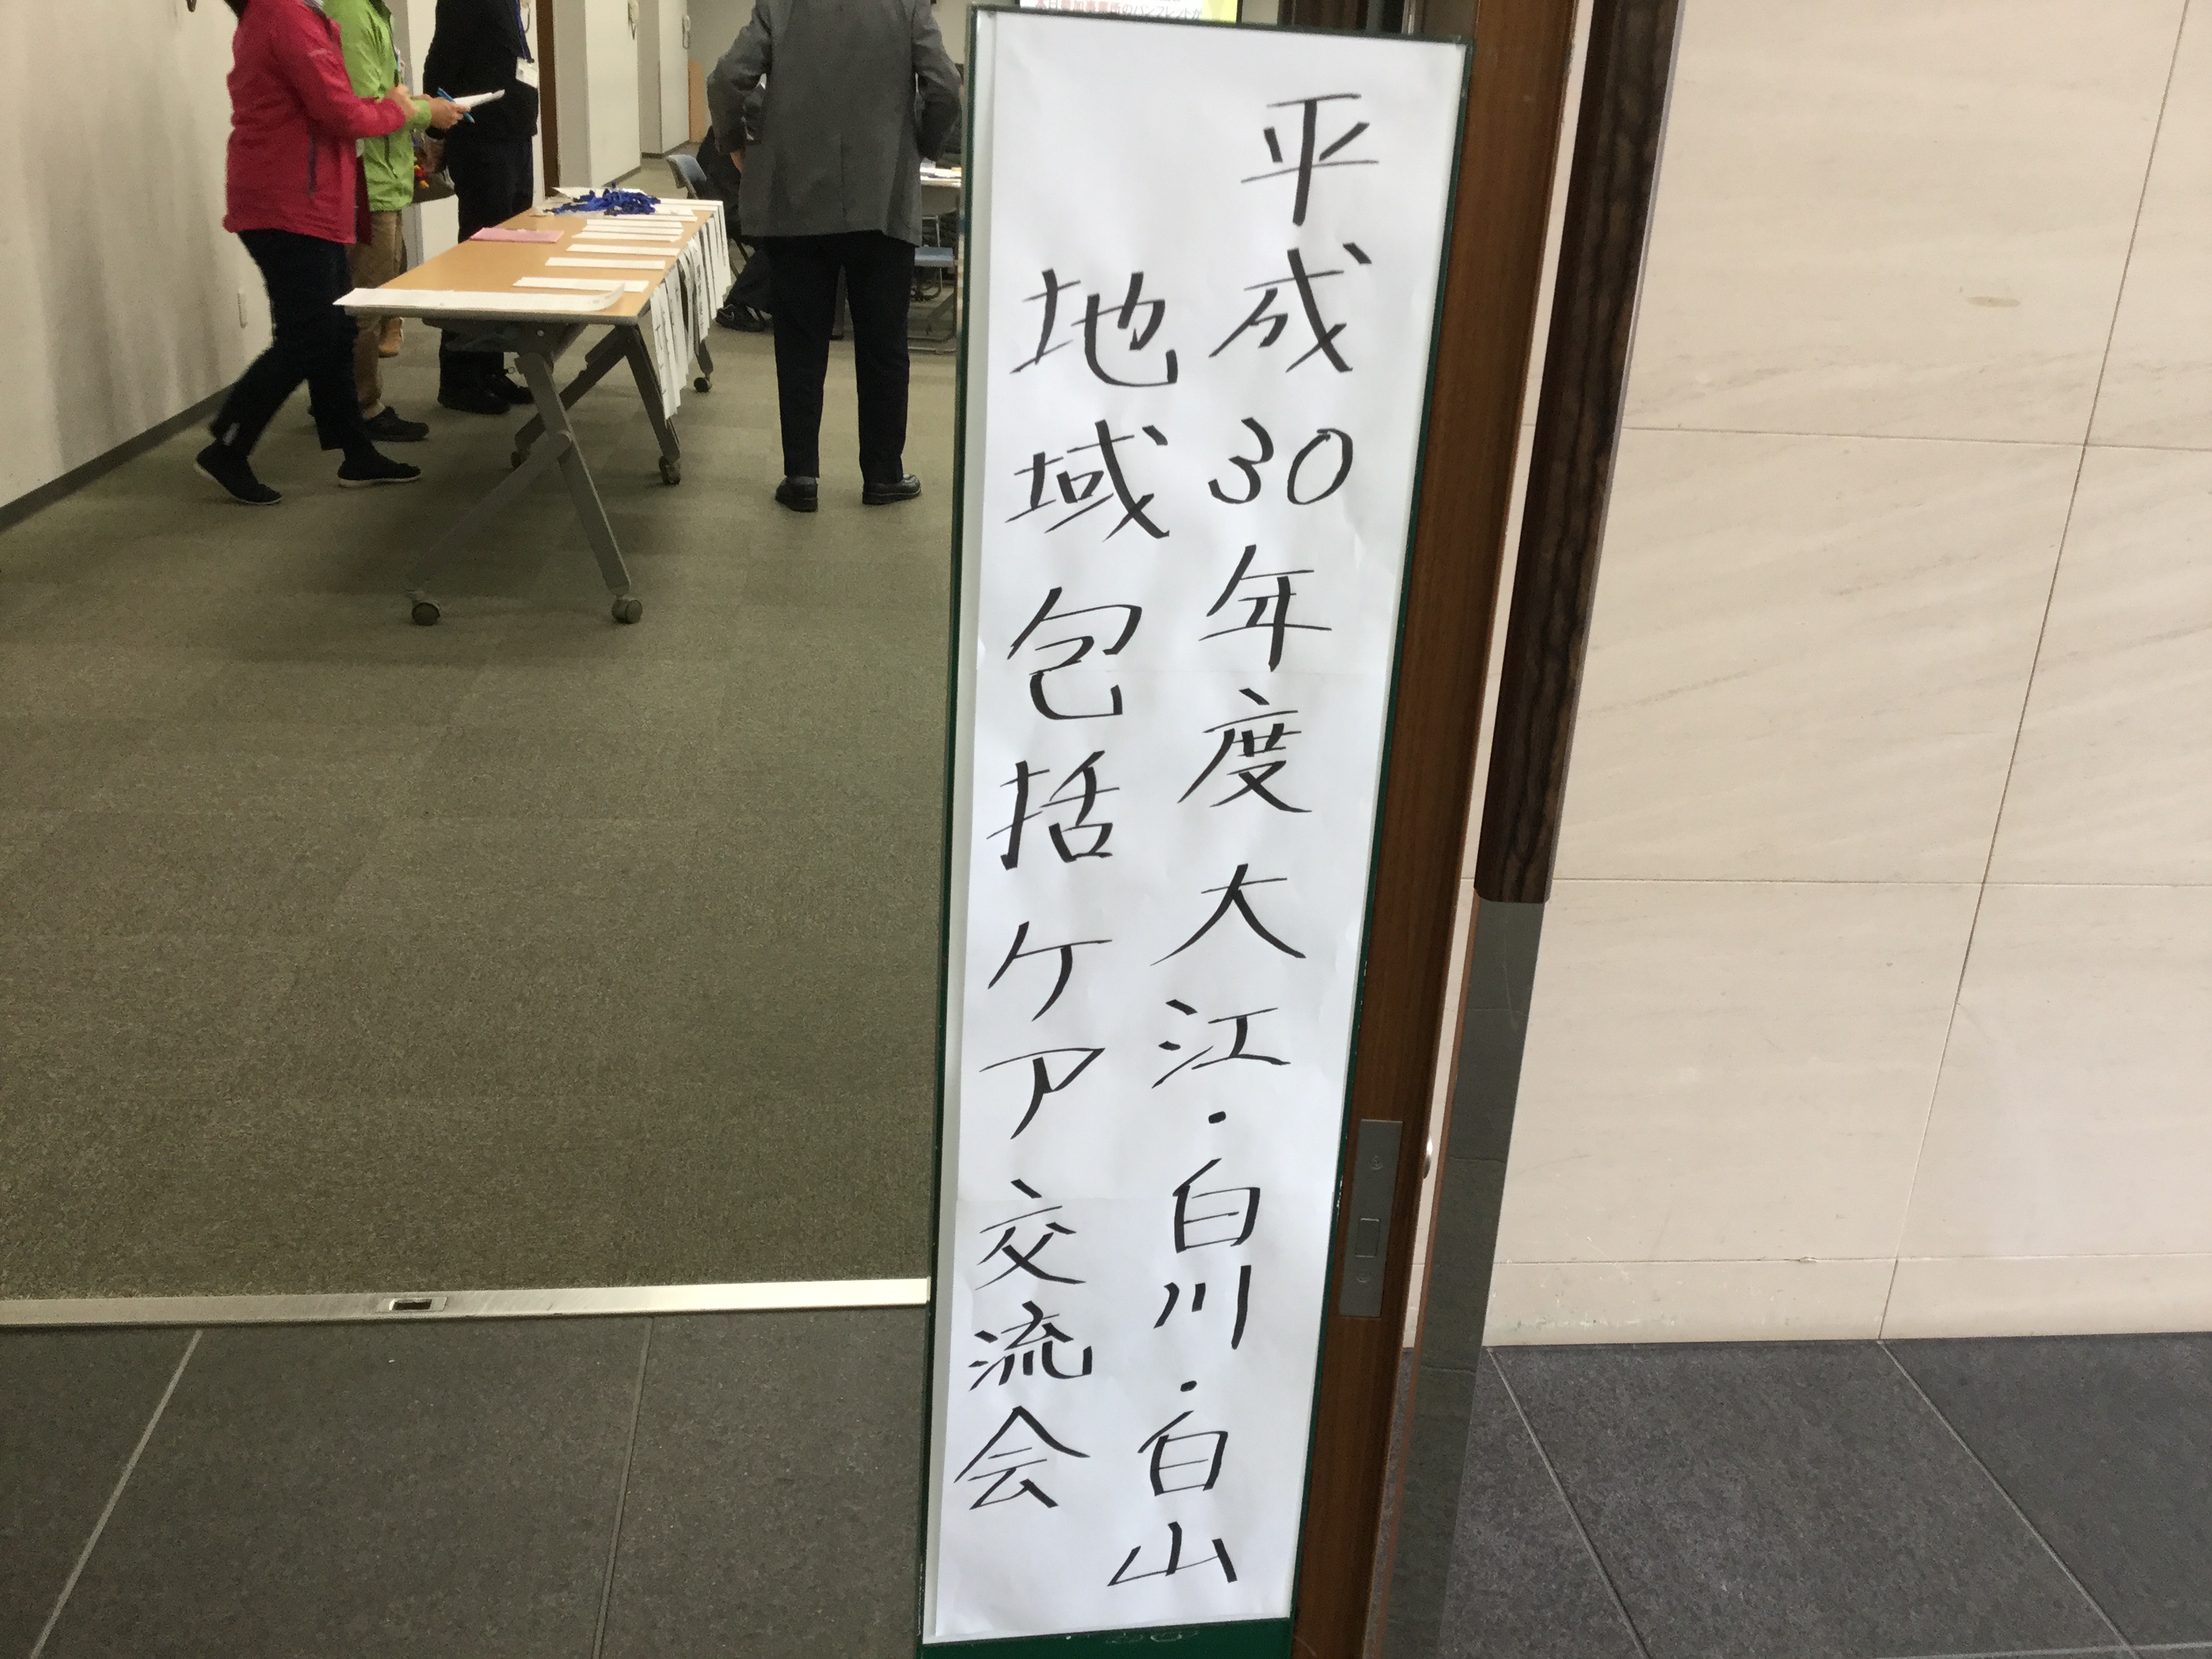 平成30年度大江・白川・白山
地域包括ケア交流会